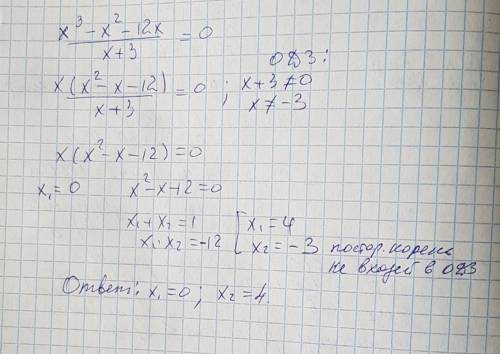 x³ - x² - 12x / x + 3 = 0
ОДЗ:
x(x² - x - 12) / x + 3 = 0 ; x + 3 ≠ 0
x ≠ -3
x(x² - x - 12) = 0
x₁ = 0 x² - x - 12 = 0
x₁ + x₂ = 1 [ x₁ = 4
x₁ · x₂ = -12 x₂ = -3 постор. корень
не входит в ОДЗ
Ответ: x₁ = 0 ; x₂ = 4.